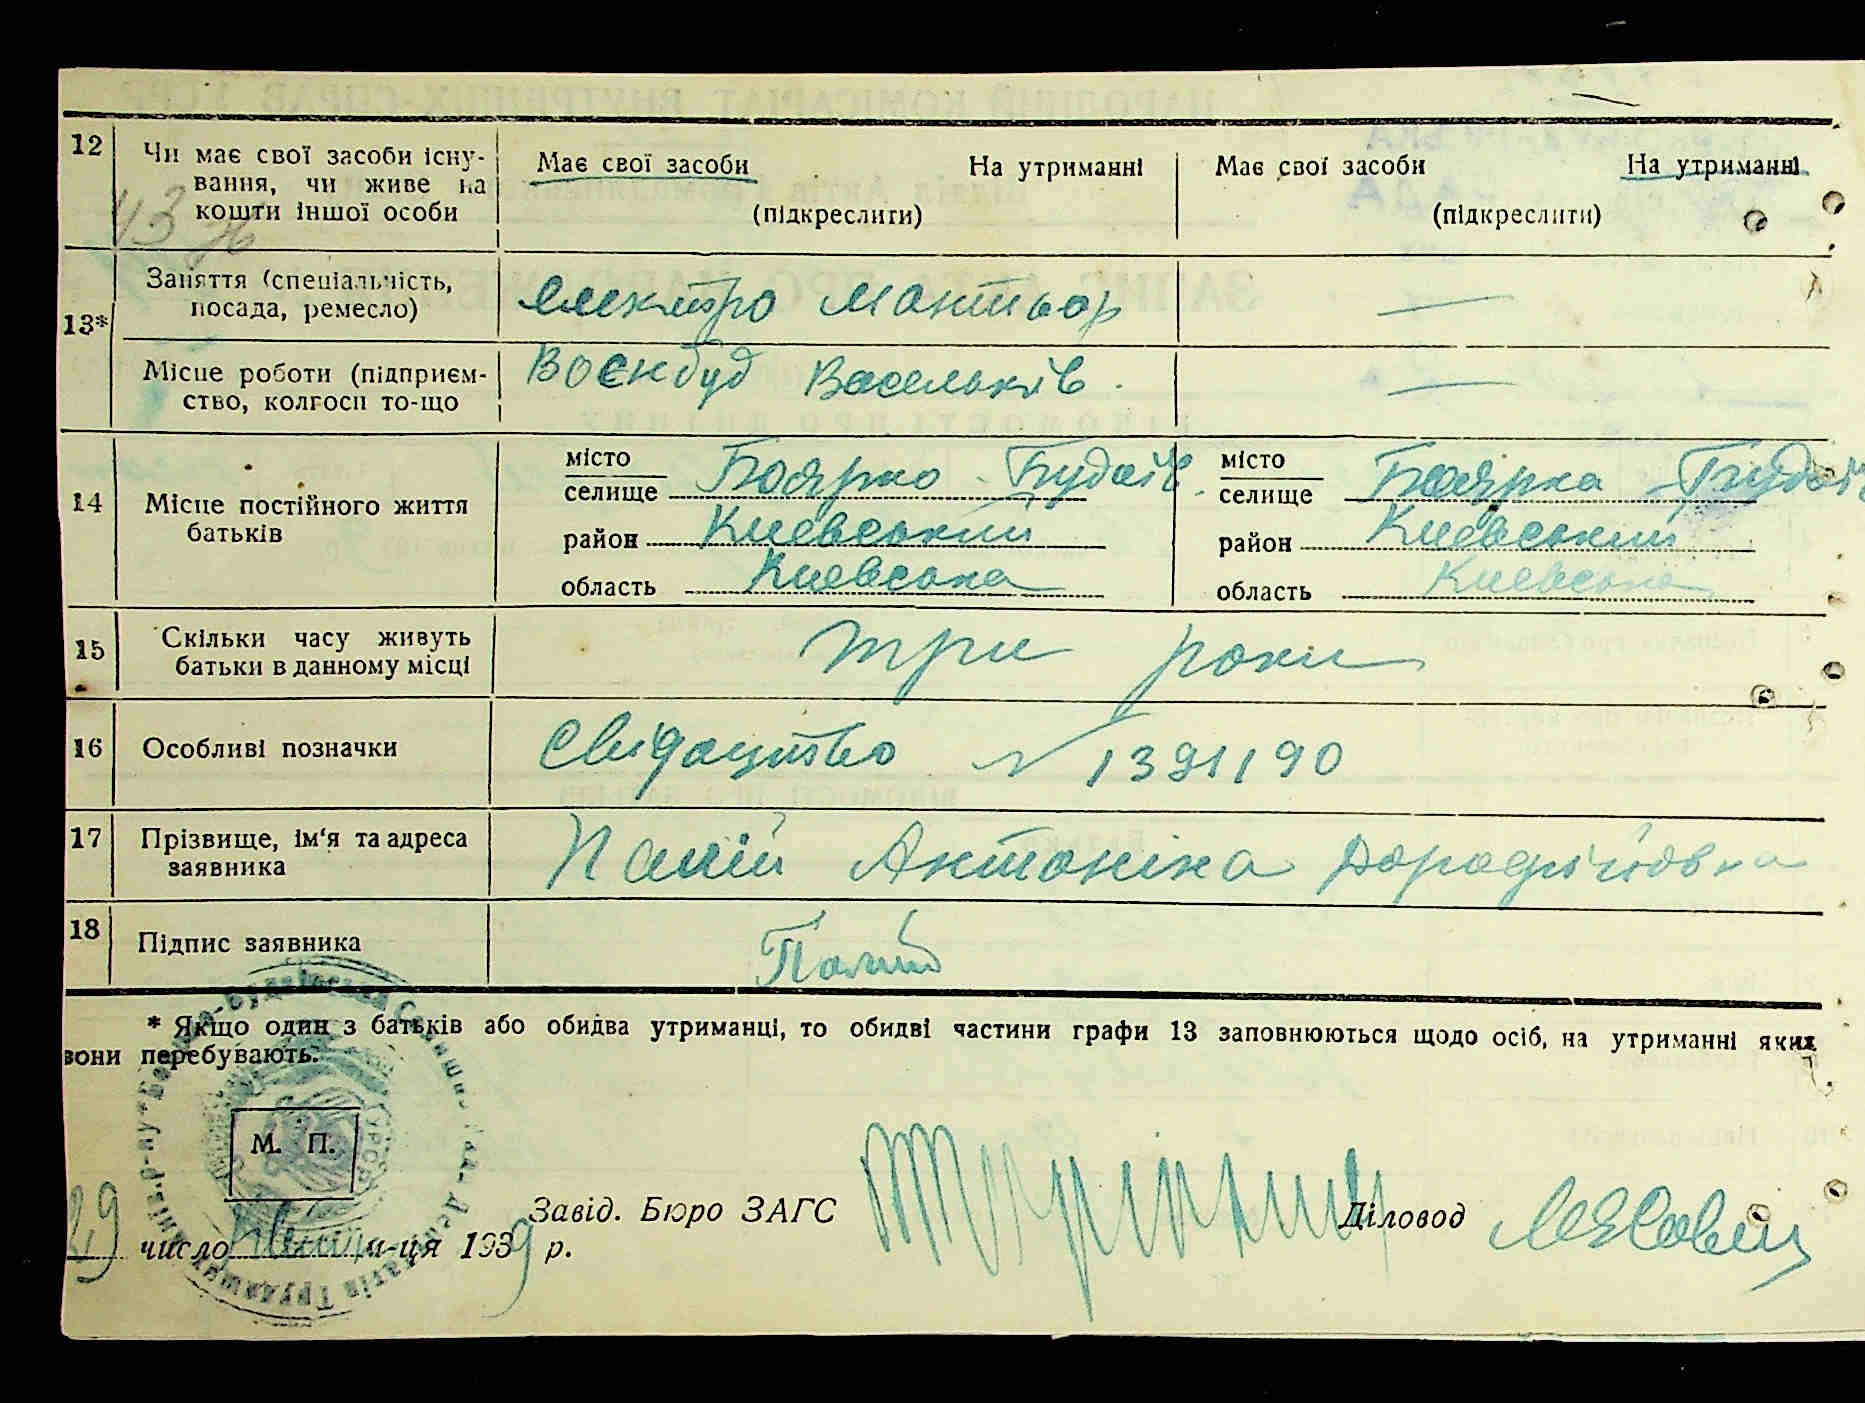 12 Чи має свої засоби існу-
вання, чи живе на
кошти іншої особи
Має свої засоби На утриманні
(підкреслити)
Має свої засоби На утриманні
(підкреслити)
13* Заняття (спеціальність,
посада, ремесло)
електро монтьор —
Місце роботи (підприєм-
ство, колгосп то-що
Воєнбуд Васельків. —
14 Місце постійного життя
батьків
місто
селище Боярко - Будаїв.
район Киевський
область Киевська
місто
селище Боярка - Будаїв
район Киевський
область Киевська
15 Скільки часу живуть
батьки в данному місці
три роки
16 Особливі позначки
Свідоцтво № 1391190
17 Прізвище, ім'я та адреса
заявника
Палій Антоніна Дорофійовна
18 Підпис заявника
Палій
* Якщо один з батьків або обидва утриманці, то обидві частини графи 13 заповнюються щодо осіб, на утриманні яких
вони перебувають.
М. П.
Завід. Бюро ЗАГС
Діловод
29 число м-ця 1939 р.